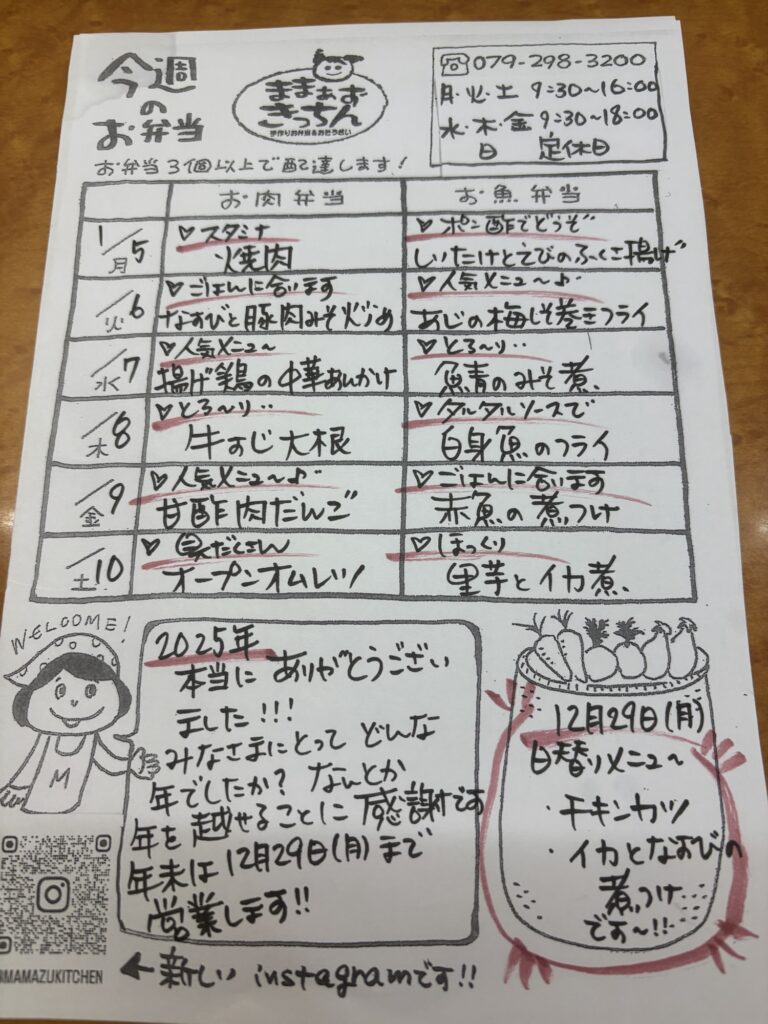 今週
の
お弁当
ままぁず
きっちん
手作りお弁当&おそうざい
☎079-298-3200
月・火・土 9:30~16:00
水・木・金 9:30~18:00
日 定休日
お弁当3個以上で配達します!
お肉弁当
お魚弁当
1/5
月
♡スタミナ
焼肉
♡ポン酢でどうぞ
しいたけとえびのふくさ揚げ
/6
火
♡ごはんに合います
なすびと豚肉みそ炒め
♡人気メニュ~♪
あじの梅しそ巻きフライ
/7
水
♡人気メニュ~
揚げ鶏の中華あんかけ
♡とろ~り‥
鯖のみそ煮
/8
木
♡とろ~り‥
牛すじ大根
♡タルタルソースで
白身魚のフライ
/9
金
♡人気メニュ~♪
甘酢肉だんご
♡ごはんに合います
赤魚の煮つけ
/10
土
♡具だくさん
オープンオムレツ
♡ほっくり
里芋とイカ煮
WELCOME!
M
2025年
本当に ありがとうござい
ました!!!
みなさまにとって どんな
年でしたか? なんとか
年を越せることに感謝です
年末は12月29日(月)まで
営業します!!
12月29日(月)
日替りメニュ~
・チキンカツ
・イカとなすびの
煮つけ
です~!!
MAMAZUKITCHEN
←新しい instagramです!!